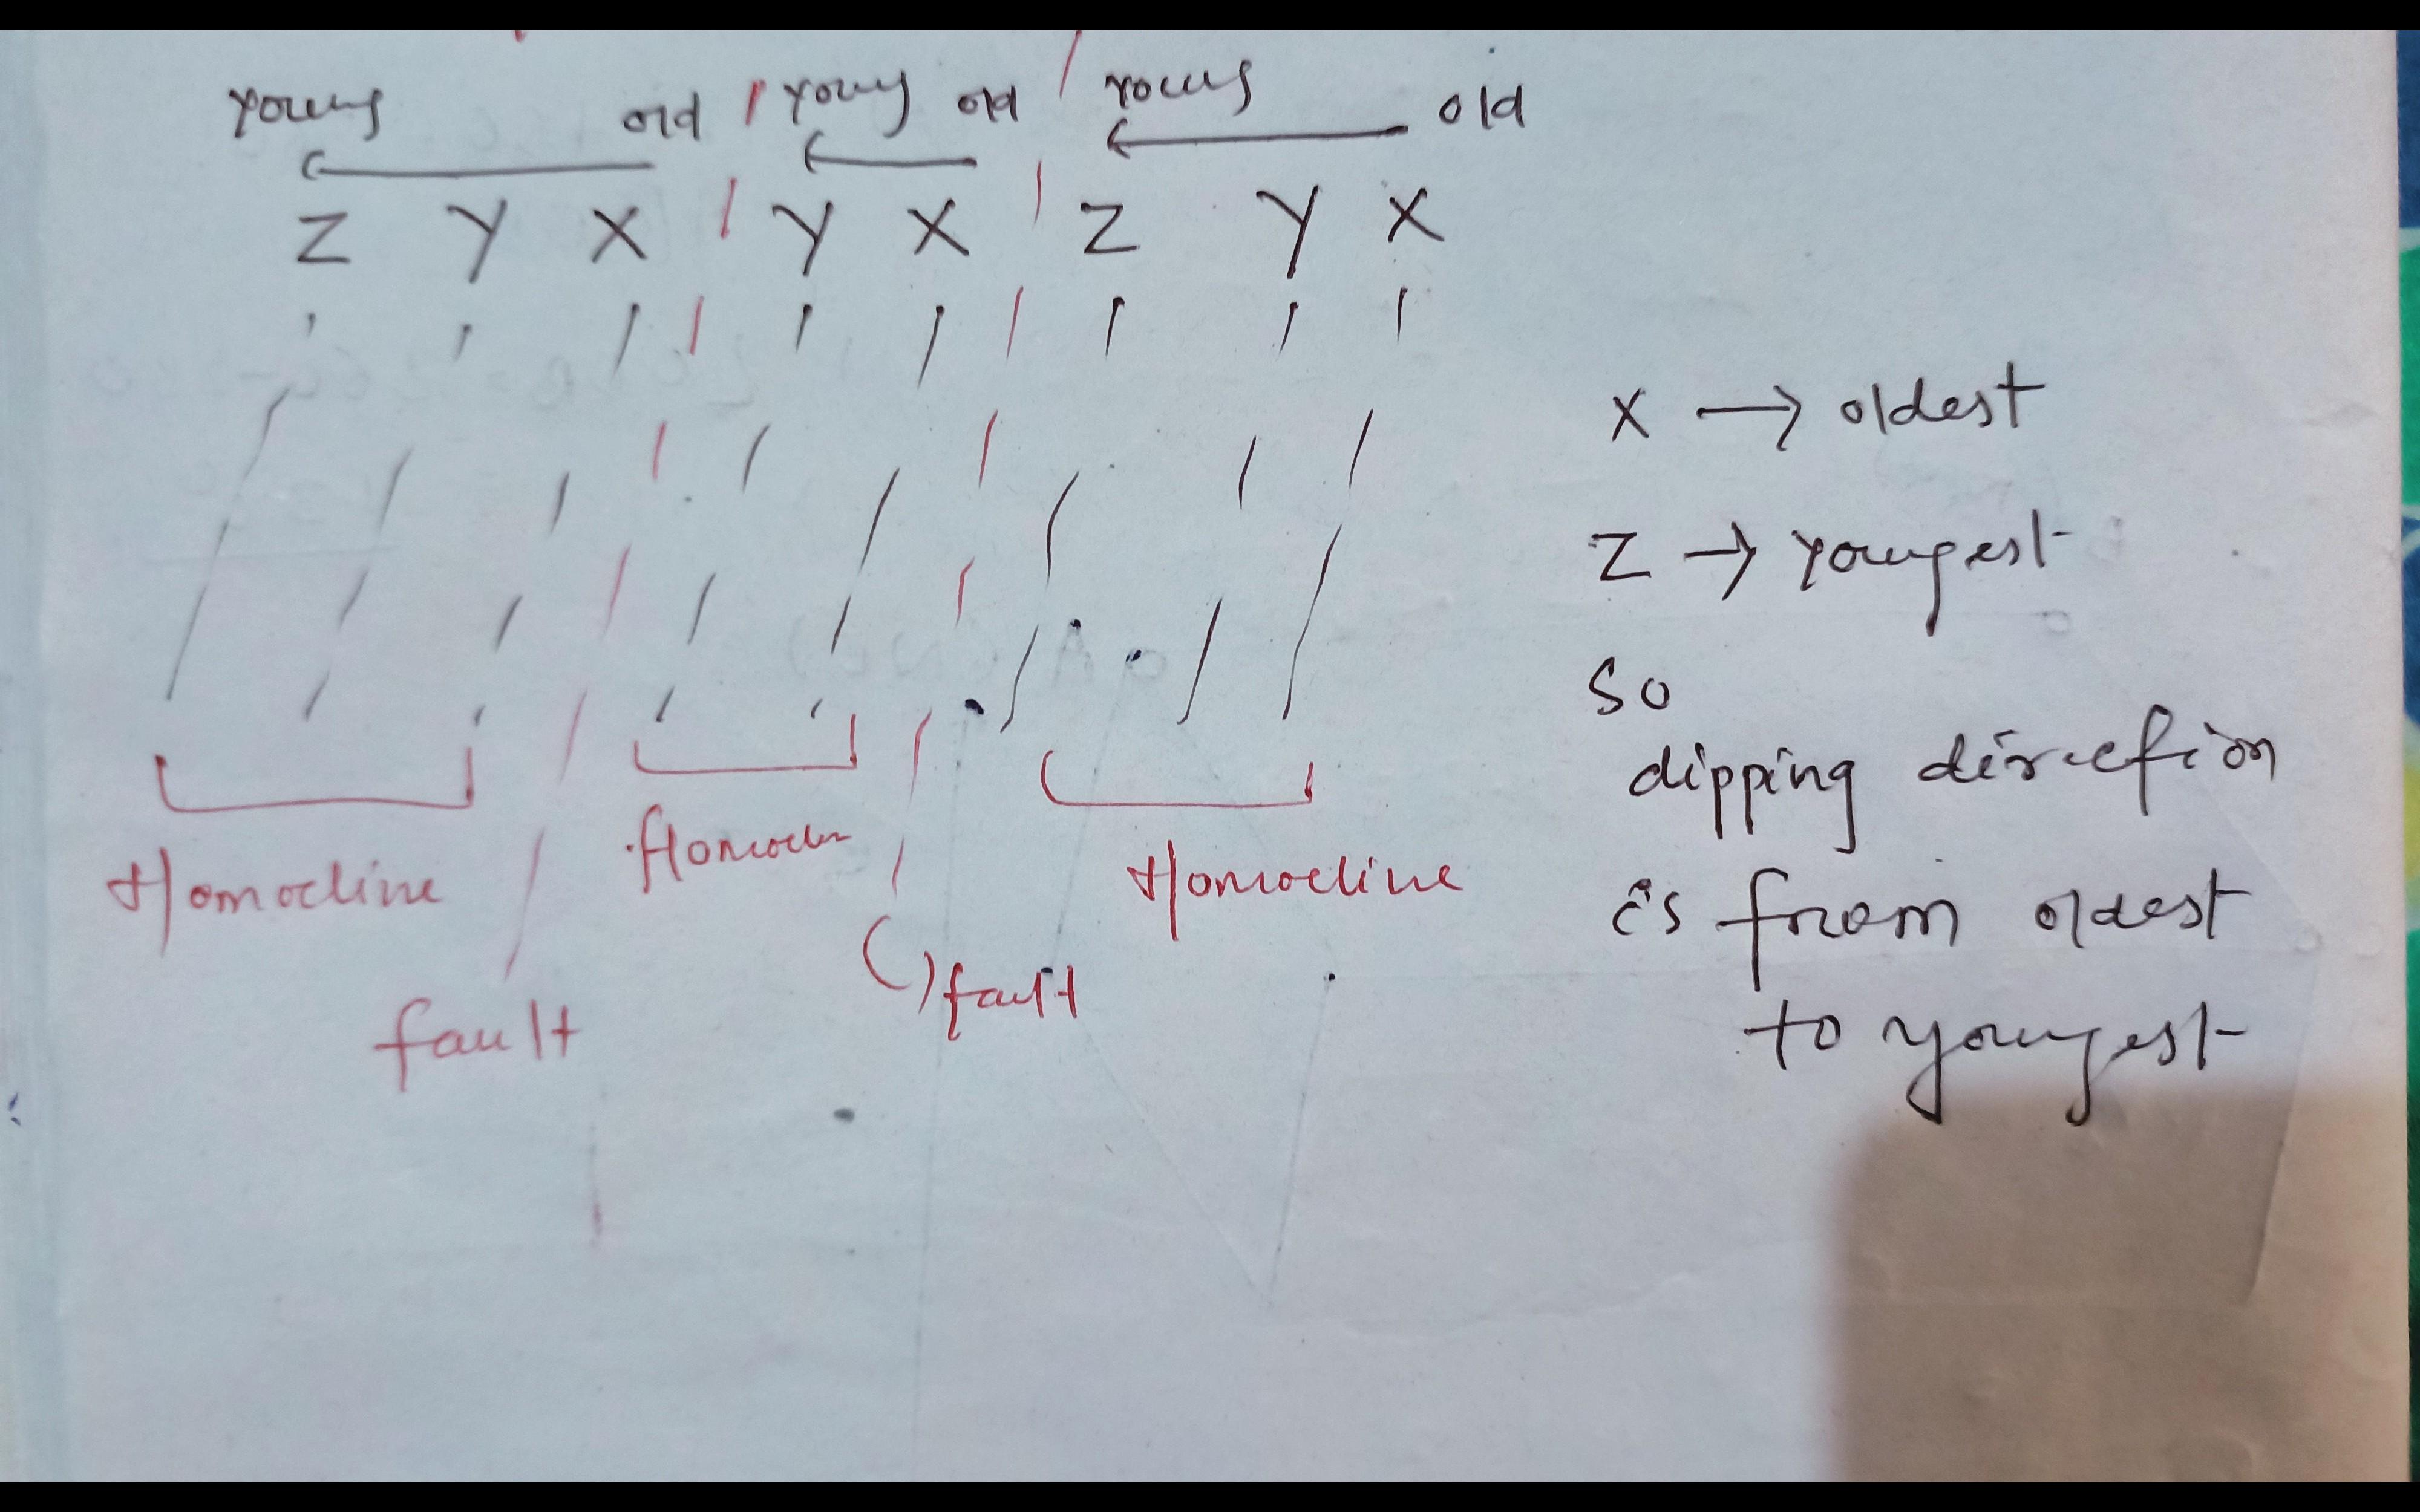 young old young old young old
Z Y X Y X Z Y X
X → oldest
Z → youngest
So
dipping direction
is from oldest
to youngest
Homocline Homocline
fault fault